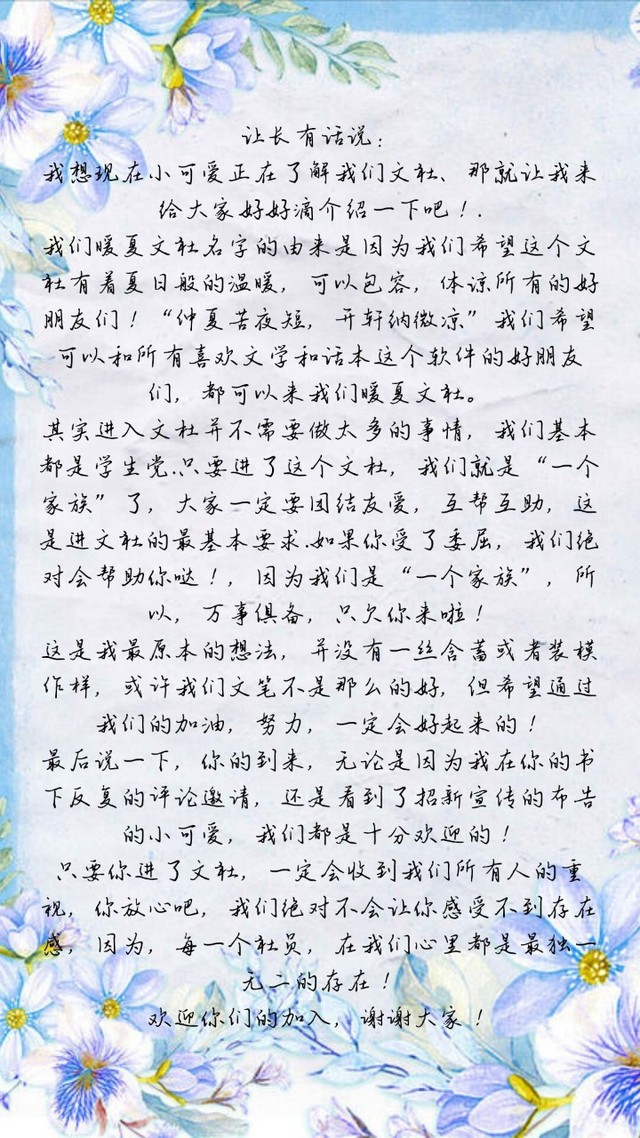 让长有话说：
我想现在小可爱正在了解我们文社、那就让我来
给大家好好滴介绍一下吧！.
我们暖夏文社名字的由来是因为我们希望这个文
社有着夏日般的温暖，可以包容，体谅所有的好
朋友们！“仲夏苦夜短，开轩纳微凉”我们希望
可以和所有喜欢文学和话本这个软件的好朋友
们，都可以来我们暖夏文社。
其实进入文社并不需要做太多的事情，我们基本
都是学生党.只要进了这个文社，我们就是“一个
家族”了，大家一定要团结友爱，互帮互助，这
是进文社的最基本要求.如果你受了委屈，我们绝
对会帮助你哒！，因为我们是“一个家族”，所
以，万事俱备，只欠你来啦！
这是我最原本的想法，并没有一丝含蓄或者装模
作样，或许我们文笔不是那么的好，但希望通过
我们的加油，努力，一定会好起来的！
最后说一下，你的到来，无论是因为我在你的书
下反复的评论邀请，还是看到了招新宣传的布告
的小可爱，我们都是十分欢迎的！
只要你进了文社，一定会收到我们所有人的重
视，你放心吧，我们绝对不会让你感受不到存在
感，因为，每一个社员，在我们心里都是最独一
无二的存在！
欢迎你们的加入，谢谢大家！